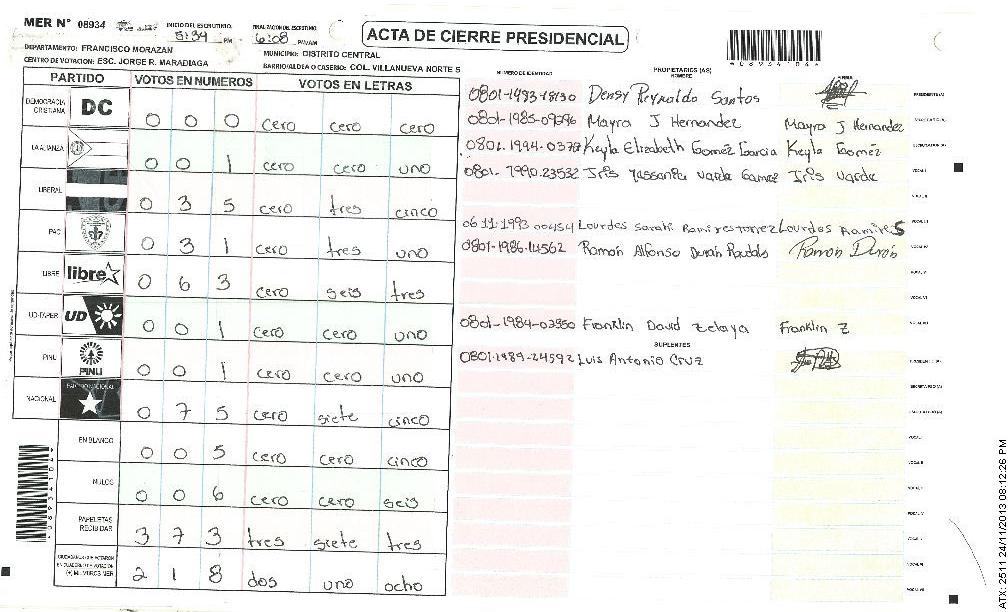 MER N° 08934
INICIO DEL ESCRUTINIO. 5:34 PM
FINALIZACION DEL ESCRUTINIO 6:08 PM/AM
ACTA DE CIERRE PRESIDENCIAL
DEPARTAMENTO: FRANCISCO MORAZAN
MUNICIPIO: DISTRITO CENTRAL
CENTRO DE VOTACION: ESC. JORGE R. MARADIAGA
BARRIO/ALDEA O CASERIO: COL. VILLANUEVA NORTE 5
PARTIDO VOTOS EN NUMEROS VOTOS EN LETRAS
DEMOCRACIA CRISTIANA DC 0 0 0 cero cero cero
LA ALIANZA 0 0 1 cero cero uno
LIBERAL 0 3 5 cero tres cinco
PAC 0 3 1 cero tres uno
LIBRE libre 0 6 3 cero seis tres
UD-FAPER UD 0 0 1 cero cero uno
PINU PINU 0 0 1 cero cero uno
NACIONAL PARTIDO NACIONAL 0 7 5 cero siete cinco
EN BLANCO 0 0 5 cero cero cinco
NULOS 0 0 6 cero cero seis
PAPELETAS RECIBIDAS 3 7 3 tres siete tres
CIUDADANOS QUE VOTARON EN CUADERNO DE VOTACION (+) MIEMBROS MER 2 1 8 dos uno ocho
NUMERO DE IDENTIDAD PROPIETARIOS (AS) NOMBRE FIRMA
0801-1993-18130 Densy Reynaldo Santos PRESIDENTE (A)
0801-1985-09396 Mayra J Hernandez Mayra J Hernandez
Keyla Elizabeth Gomez Garcia Keyla Gomez
Iris Varde
Lourdes Sarahi
0801-1986-14562 Ramón Alfonso Durán Ramón Durón
0801-1984-03950 Franklin David Zelaya Franklin Z
SUPLENTES
0801-1989-24592 Luis Antonio Cruz
ATX: 2511 24/11/2013 08:12:26 PM